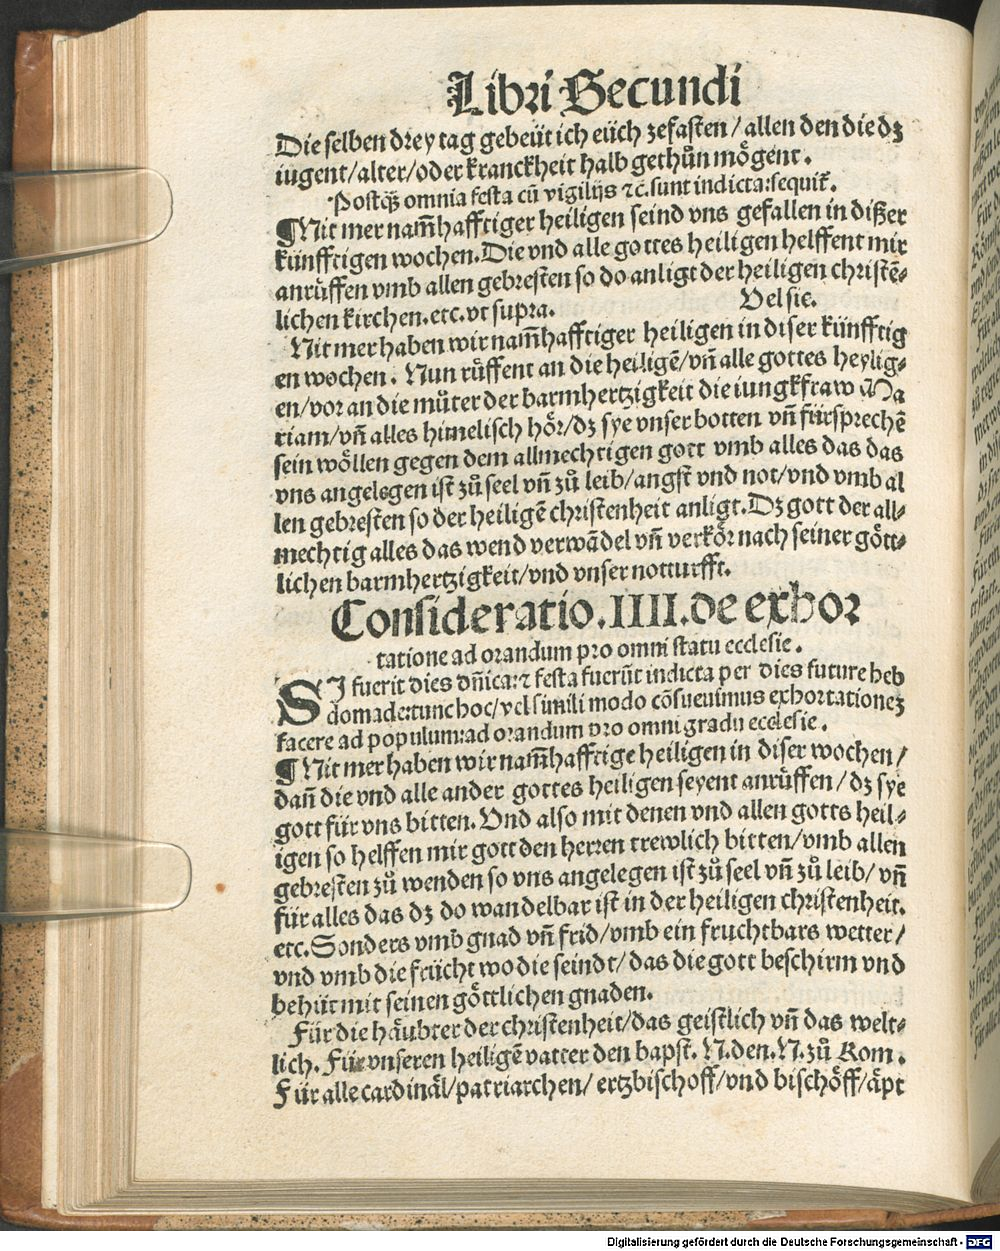 Libri Secundi
Die selben drey tag gebeüt ich eüch zefasten / allen den die dz
iugent/alter/oder kranckheit halb gethůn mögent.
Postqȝ omnia festa cū vigilijs ⁊c̄. sunt indicta: sequit̄.
¶Nit mer nam̄hafftiger heiligen seind vns gefallen in dißer
künfftigen wochen. Die vnd alle gottes heiligen helffent mir
anrüffen vmb allen gebresten so do anligt der heiligen christē⸗
lichen kirchen. etc. vt supra. Vel sic.
Nit mer haben wir nam̄hafftiger heiligen in diser künfftig
en wochen. Nun rüffent an die heiligē/vn̄ alle gottes heylig⸗
en/vor an die můter der barmhertzigkeit die iungkfraw Ma
riam/vn̄ alles himelisch hör/dz sye vnser botten vn̄ fürsprechē
sein wöllen gegen dem allmechtigen gott vmb alles das das
vns angelegen ist zů seel vn̄ zů leib/angst vnd not/vnd vmb al
len gebresten so der heiligē christenheit anligt. Dz gott der all⸗
mechtig alles das wend verwādel vn̄ verkör nach seiner gött⸗
lichen barmhertzigkeit/vnd vnser notturfft.
Consideratio. IIII. de exhor
tatione ad orandum pro omni statu ecclesie.
SI fuerit dies dn̄ica: ⁊ festa fuerūt indicta per dies future heb
domade: tunc hoc/vel simili modo cōsueuimus exhortationeȝ
facere ad populum: ad orandum pro omni gradu ecclesie.
¶Nit mer haben wir nam̄hafftige heiligen in diser wochen/
dan̄ die vnd alle ander gottes heiligen seyent anrüffen/dz sye
gott für vns bitten. Vnd also mit denen vnd allen gotts heil⸗
igen so helffen mir gott den herren trewlich bitten/vmb allen
gebresten zů wenden so vns angelegen ist zů seel vn̄ zů leib/vn̄
für alles das dz do wandelbar ist in der heiligen christenheit.
etc. Sonders vmb gnad vn̄ frid/vmb ein fruchtbars wetter/
vnd vmb die frücht wo die seindt/das die gott beschirm vnd
behüt mit seinen göttlichen gnaden.
Für die häubter der christenheit/das geistlich vn̄ das welt⸗
lich. Für vnseren heiligē vatter den bapst. N. den. N. zů Rom.
Für alle cardinäl/patriarchen/ertzbischoff/vnd bischöff/äpt
Digitalisierung gefördert durch die Deutsche Forschungsgemeinschaft - DFG